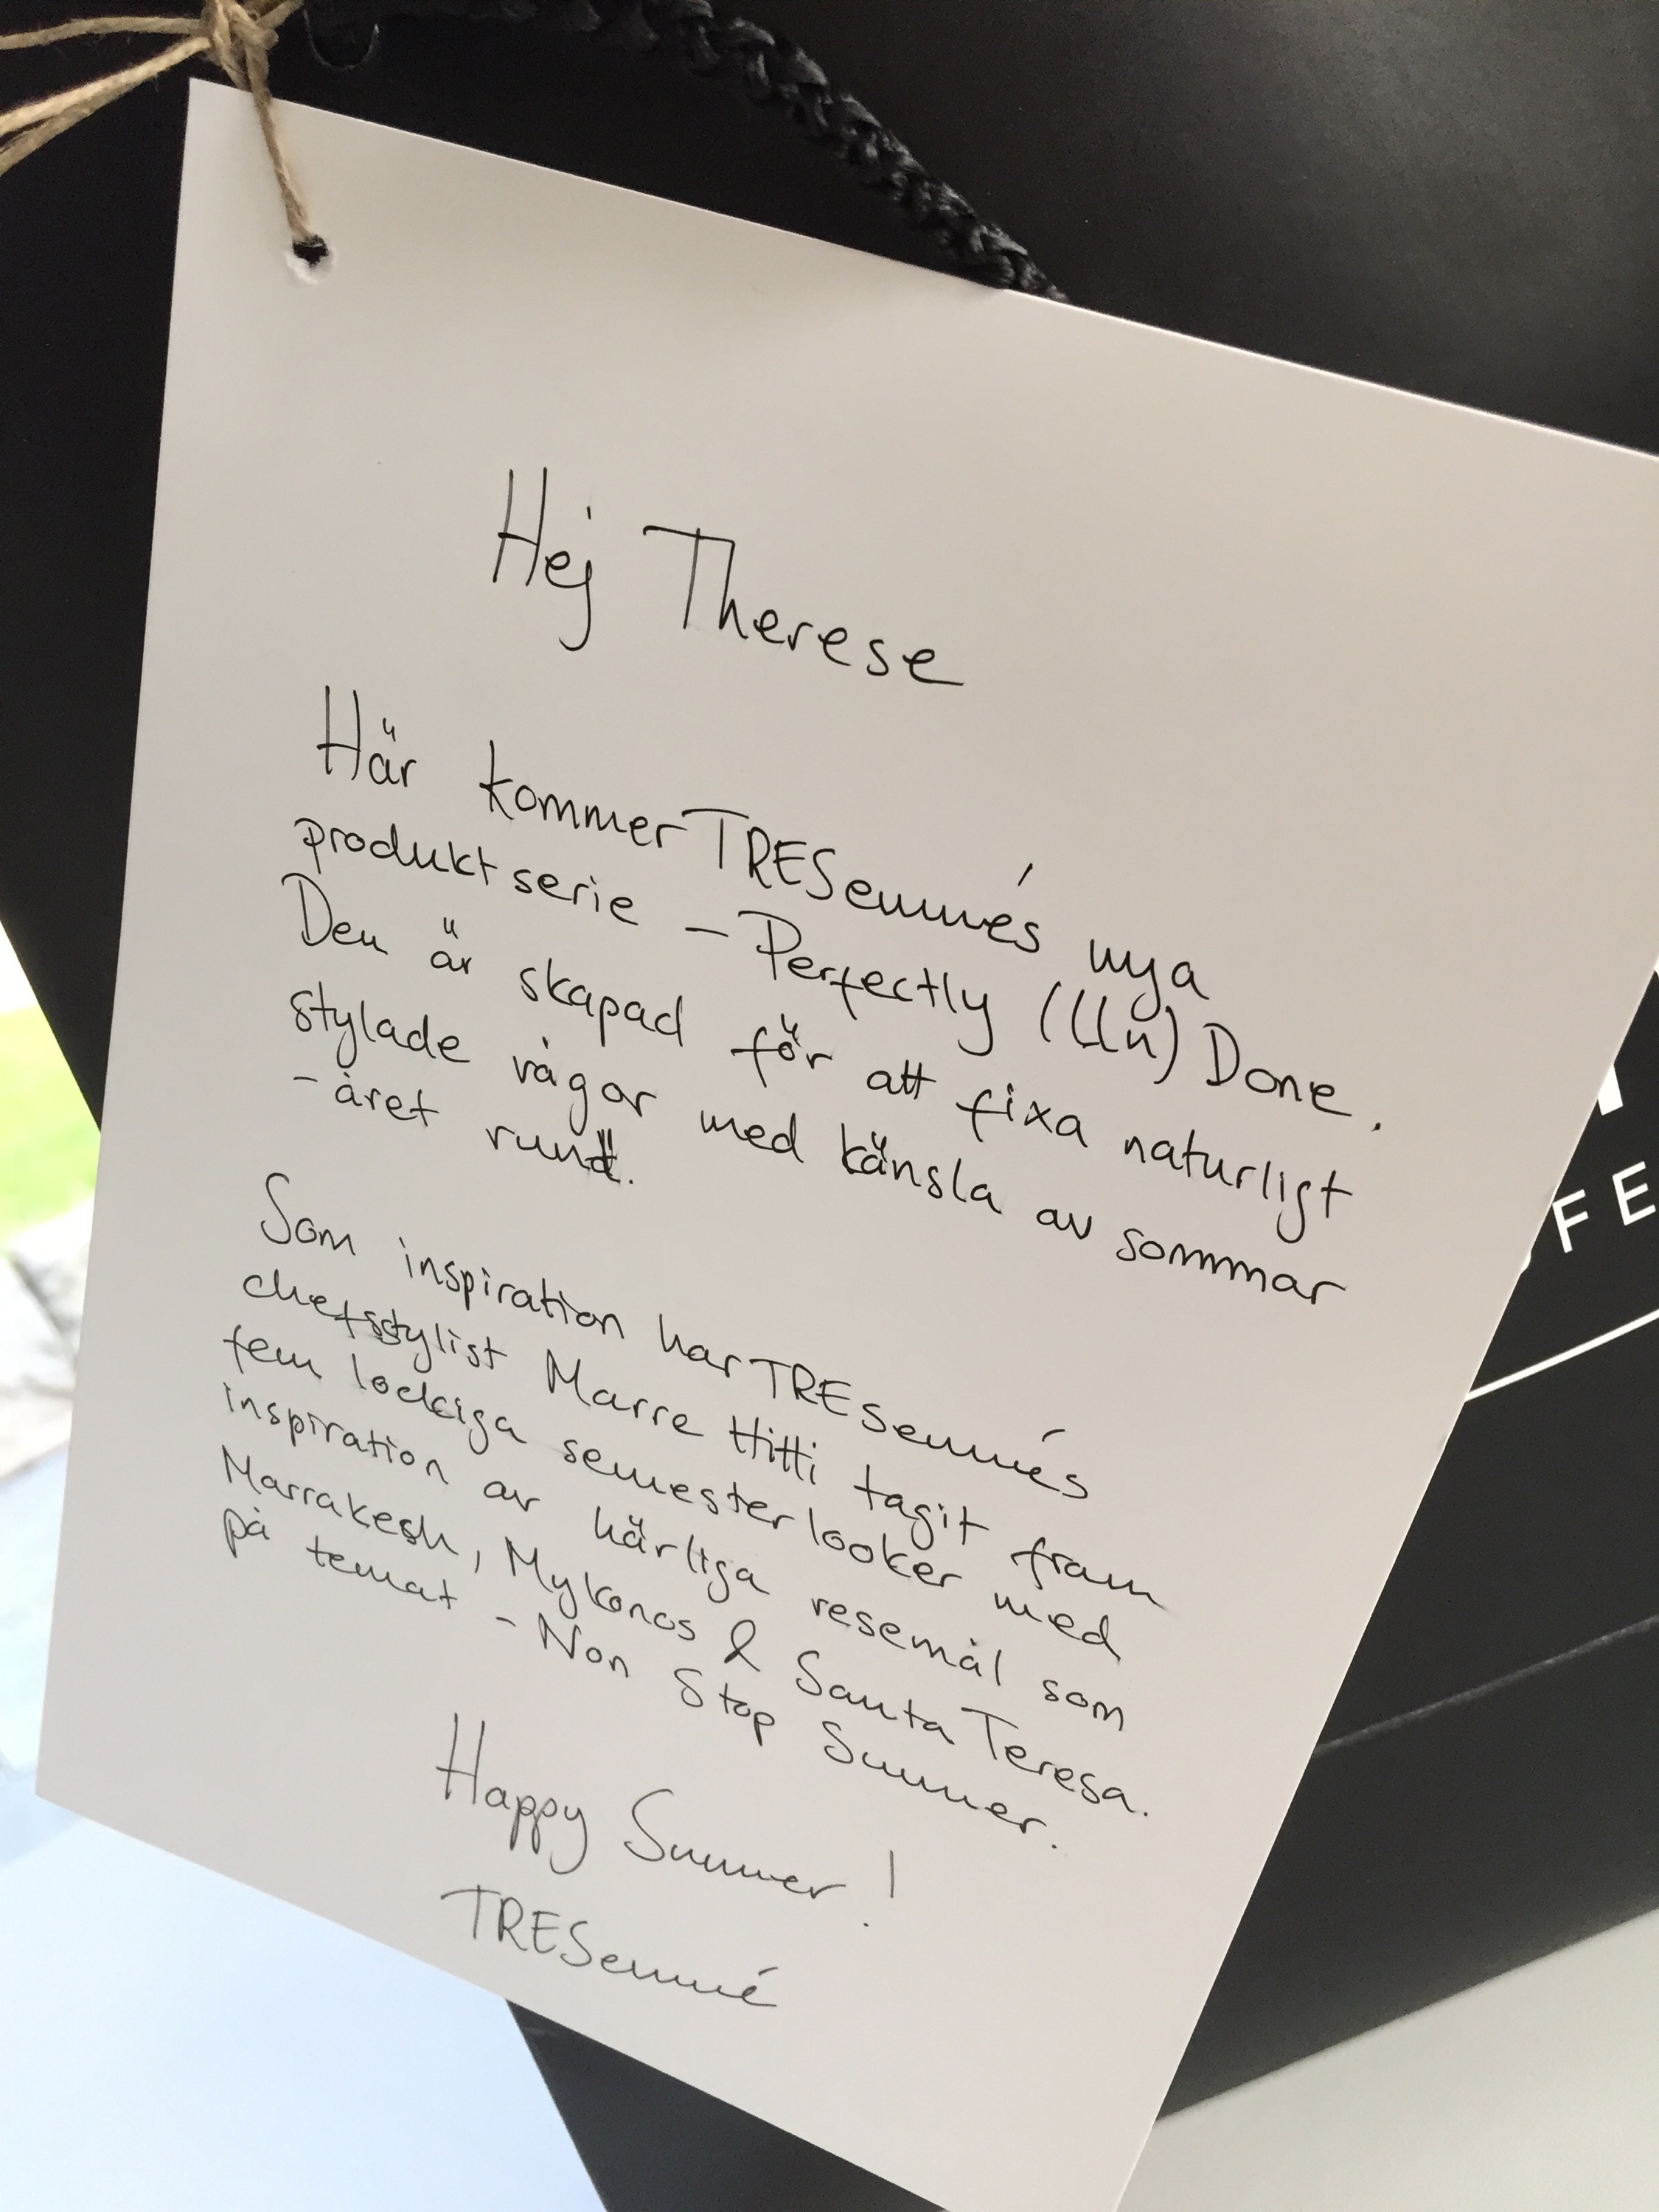 Hej Therese
Här kommer TRESemmés nya
produktserie - Perfectly (Un) Done.
Den är skapad för att fixa naturligt
stylade vågor med känsla av sommar
- året runt.
Som inspiration har TRESemmés
chefsstylist Marre Hitti tagit fram
fem lockiga semesterlooker med
inspiration av härliga resemål som
Marrakesh, Mykonos & Santa Teresa.
på temat - Non Stop Summer.
Happy Summer!
TRESemmé
FE